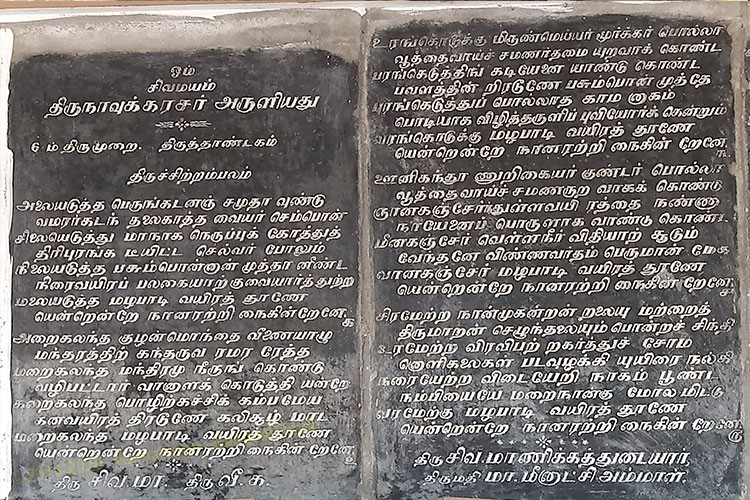 ஓம்
சிவமயம்
திருநாவுக்கரசர் அருளியது
6 ம் திருமுறை. திருத்தாண்டகம்
திருச்சிற்றம்பலம்
அலையடுத்த பெருங்கடனஞ் சமுதா வுண்டு
வமரர்கடந் தலைகாத்த வையர் செம்பொன்
சிலையெடுத்து மாநாக நெருப்புக் கோத்துத்
திரிபுரங்க டீயிட்ட செல்வர் போலும்
நிலையடுத்த பசும்பொன்னான் முத்தா னீண்ட
நிரைவயிரப் பலகையாற் குவையார்த் துற்ற
மலையடுத்த மழபாடி வயிரத் தூணே
யென்றென்றே நானரற்றி நைகின்றேனே.
அறைகலந்த குழன்மொந்தை வீணையாழு
மந்தரத்திற் கந்தருவ ரமர ரேத்த
மறைகலந்த மந்திரமு நீருங் கொண்டு
வழிபட்டார் வானாளக் கொடுத்தி யன்றே
கறைகலந்த பொழிற்கச்சிக் கம்பமேய
கனவயிரத் திரடூணே கலிசூழ் மாட
மறைகலந்த மழபாடி வயிரத் தூணே
யென்றென்றே நானரற்றி நைகின் றேனே
திரு சிவ.மா. திரு வீ.க.
உரங்கொடுக்கு மிருண்மெய்யர் மூர்க்கர் பொல்லா
வூத்தைவாய்ச் சமணர்தமை யுறவாக் கொண்ட
பரங்கெடுத்திங் கடியேனை யாண்டு கொண்ட
பவளத்தின் றிரடூணே பசும்பொன் முத்தே
புரங்கெடுத்துப் பொல்லாத காம னாகம்
பொடியாக விழித்தருளிப் புவியோர்க் கென்றும்
வரங்கொடுக்கு மழபாடி வயிரத் தூணே
யென்றென்றே நானரற்றி நைகின் றேனே.
ஊனிகந்தூ ணுறிகையர் குண்டர் பொல்லா
வூத்தைவாய்ச் சமணருற வாகக் கொண்டு
ஞானகஞ்சேர்ந்துள்ளவயி ரத்தை நண்ணா
நாயேனைப் பொருளாக வாண்டு கொண்ட
மீனகஞ்சேர் வெள்ளநீர் விதியாற் சூடும்
வேந்தனே விண்ணவர்தம் பெருமான் மேக
வானகஞ்சேர் மழபாடி வயிரத் தூணே
யென்றென்றே நானரற்றி நைகின் றேனே
சிரமேற்ற நான்முகன்றன் றலையு மற்றைத்
திருமாறன் செழுந்தலையும் பொன்றச் சிந்தி
உரமேற்ற விரவிபற் றகர்த்துச் சோம
னொளிகலைகள் படவுழக்கி யுயிரை நல்கி
நரையேற்ற விடையேறி நாகம் பூண்ட
நம்பியையே மறைநான்கு மோல மிட்டு
வரமேற்கு மழபாடி வயிரத் தூணே
யென்றென்றே நானரற்றி நைகின் றேனே
திரு சிவ.மாணிக்கத்துடையார்,
திருமதி மா. மீனாட்சி அம்மாள்.